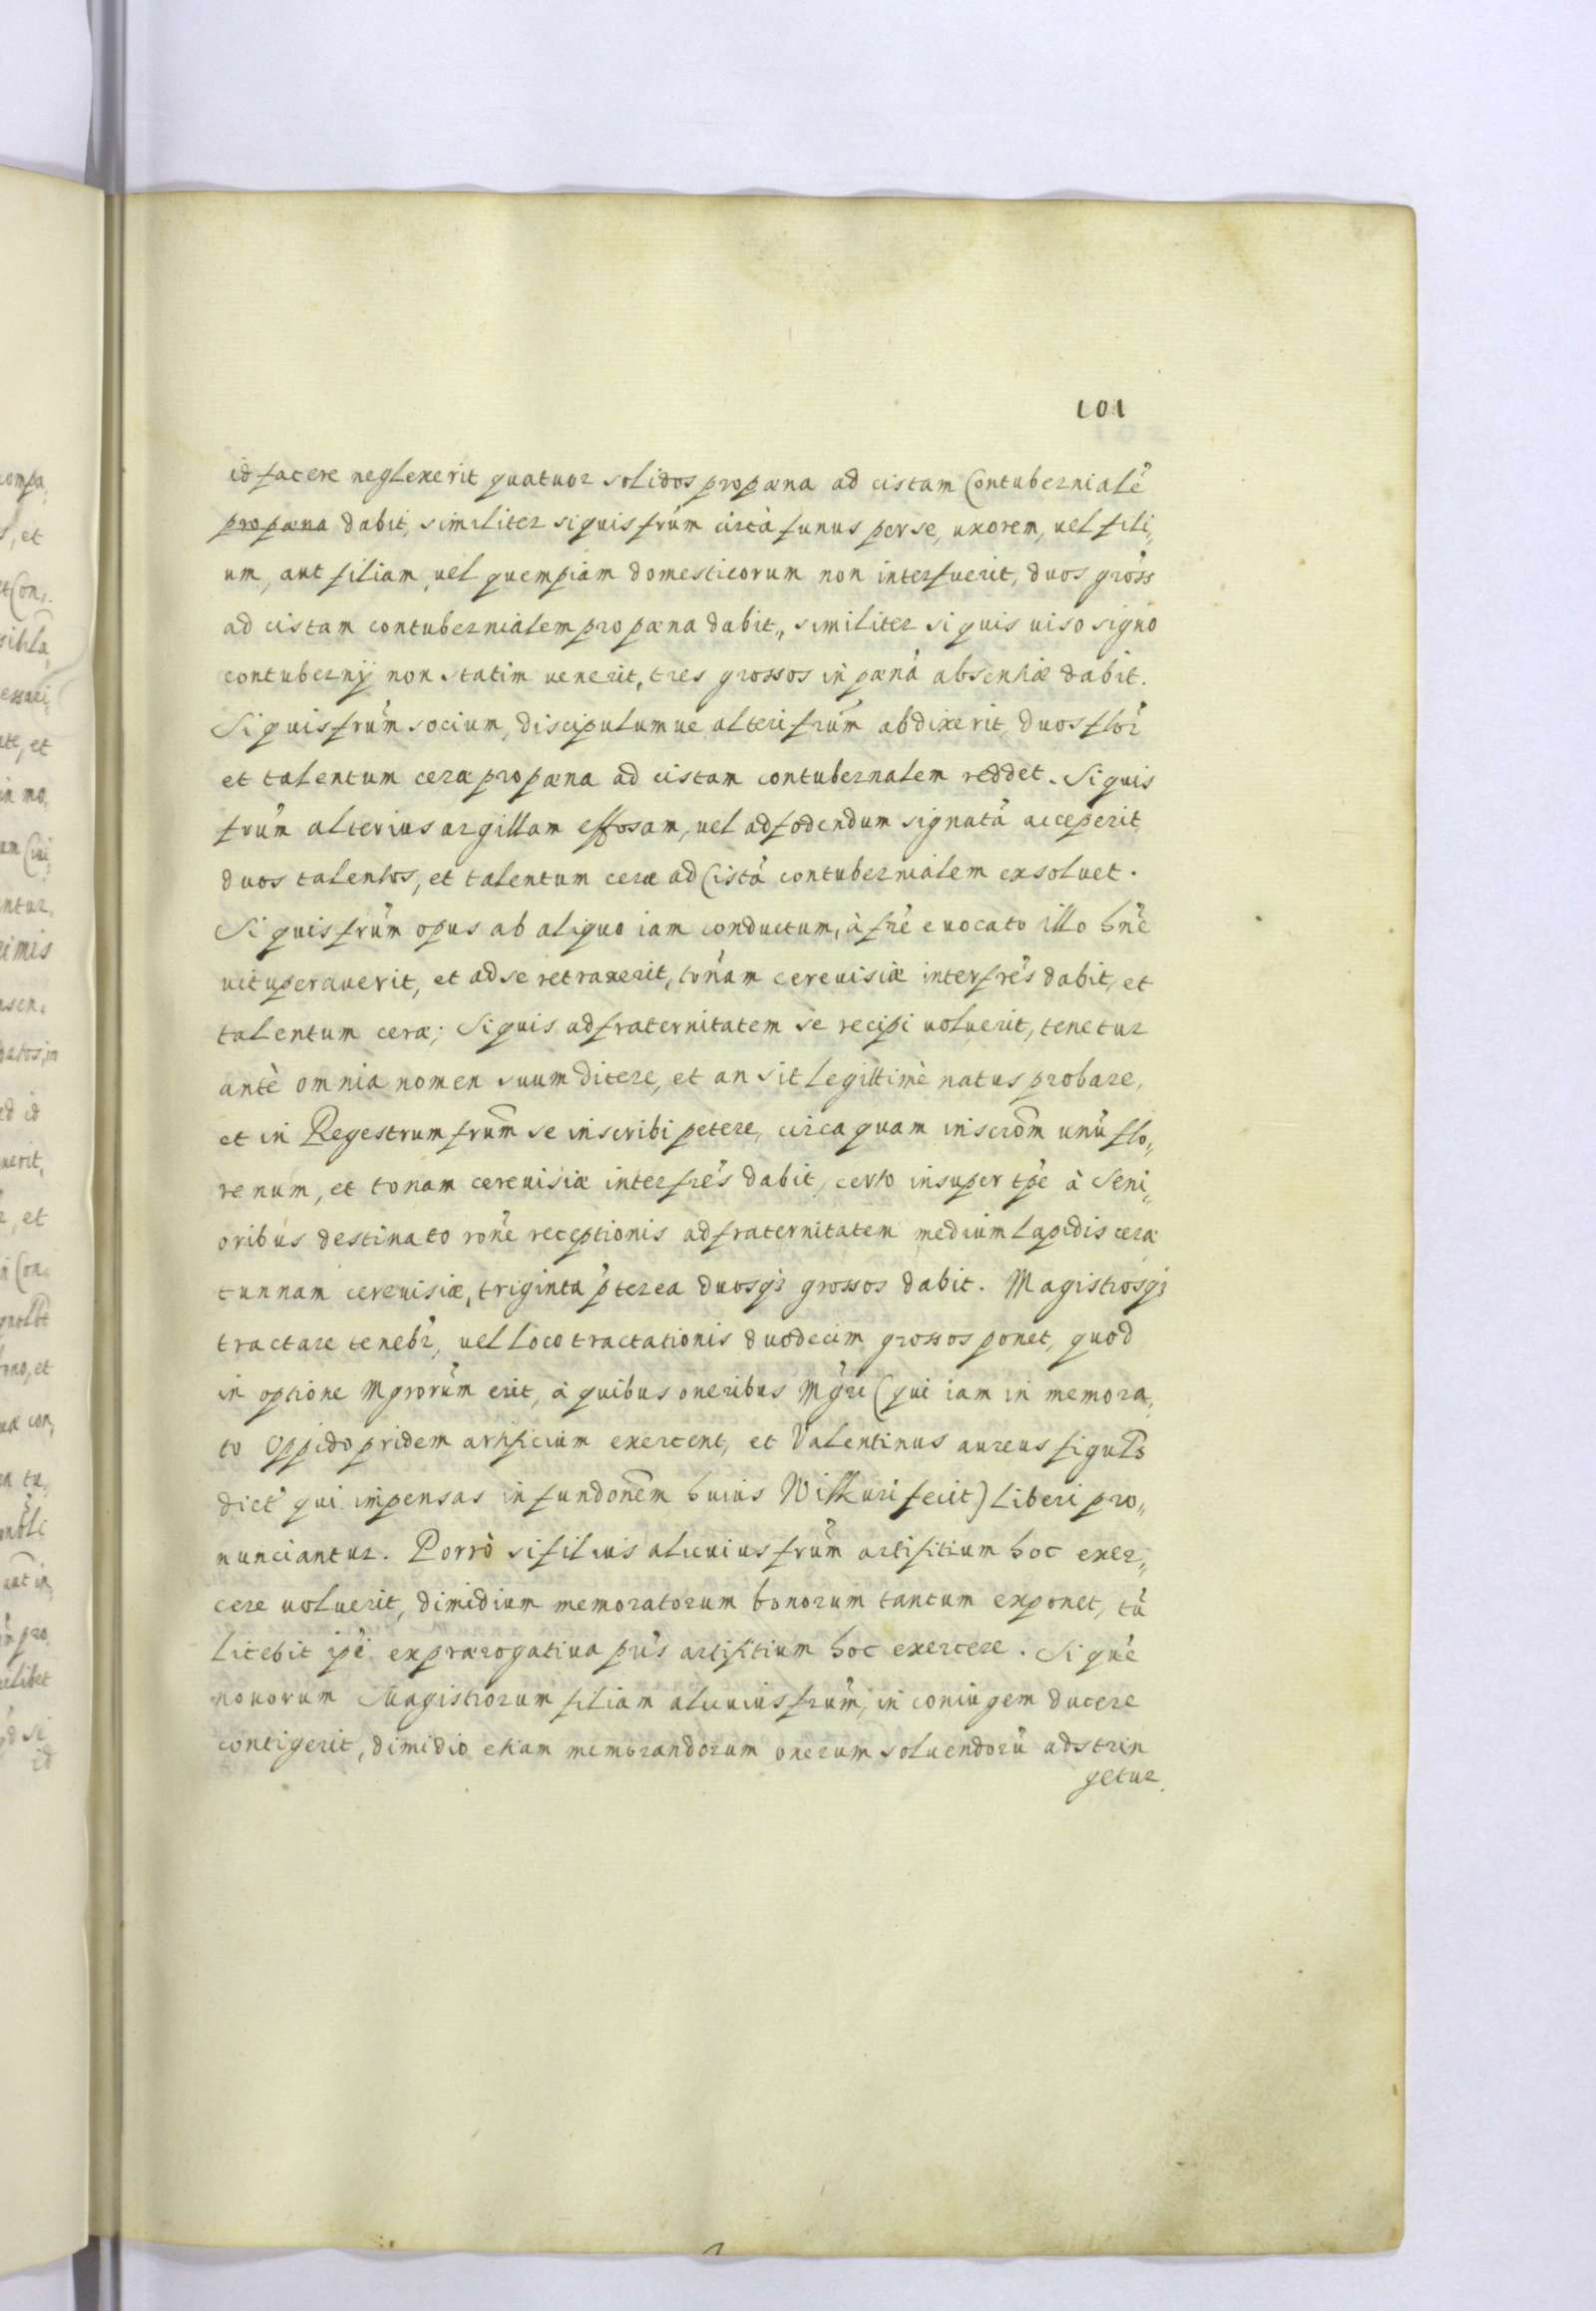 101
id facere neglexerit quatuor solidos pro pæna ad cistam Contubernialē
pro pæna dabit, similiter si quis frūm circà funus per se, uxorem, vel fili„
um, aut filiam, vel quempiam domesticorum non interfuerit, duos gross
ad cistam contubernialem pro pæna dabit„ similiter si quis viso signo
contubernij non statim venerit, tres grossos in pænā absentiæ dabit.
Si quis frūm socium, discipulumve alteri frūm abdixerit duos flor
et talentum ceræ pro pæna ad cistam contubernalem reddet. Si quis
frūm alterius argillam effosam, vel ad fodendum signatā acceperit
duos talentos, et talentum ceræ ad Cistā contubernialem exsolvet.
Si quis frūm opus ab aliquo iam conductum, à frē evocato illo hnē
vituperaverit, et ad se retraxerit, tōnam cerevisiæ inter frēs dabit, et
talentum ceræ; Si quis ad fraternitatem se recipi voluerit, tenetur
antè omnia nomen suum dicere, et an sit legittimè natus probare,
et in Regestrum frum se inscribi petere, circa quam inscrōm unū flo„
renum, et tonam cerevisiæ inter frēs dabit, certo insuper tpē à Seni„
oribus destinato ronē receptionis ad fraternitatem medium lapidis ceræ
tunnam cerevisiæ, triginta p̄terea duosq3 grossos dabit. Magistrosq3
tractare tenebr, vel loco tractationis duodecim grossos ponet, quod
in optione Mgrorūm erit, à quibus oneribus Mgri (qui iam in memora„
to Oppido pridem artificium exercent, et Valentinus aureus figuls
dict qui impensas in fundonēm huius Wilkuri fecit) liberi pro„
nunciantur. Porrò si filius alicuius frūm artifitium hoc exer„
cere voluerit, dimidium memoratorum bonorum tantum exponet, tū
licebit ipi ex prærogativa pris artifitium hoc exercere. Si quē
novorum Magistrorum filiam alicuius frūm, in coniugem ducere
contigerit, dimidio etiam memorandorum onerum solvendorū adstrin
getur.